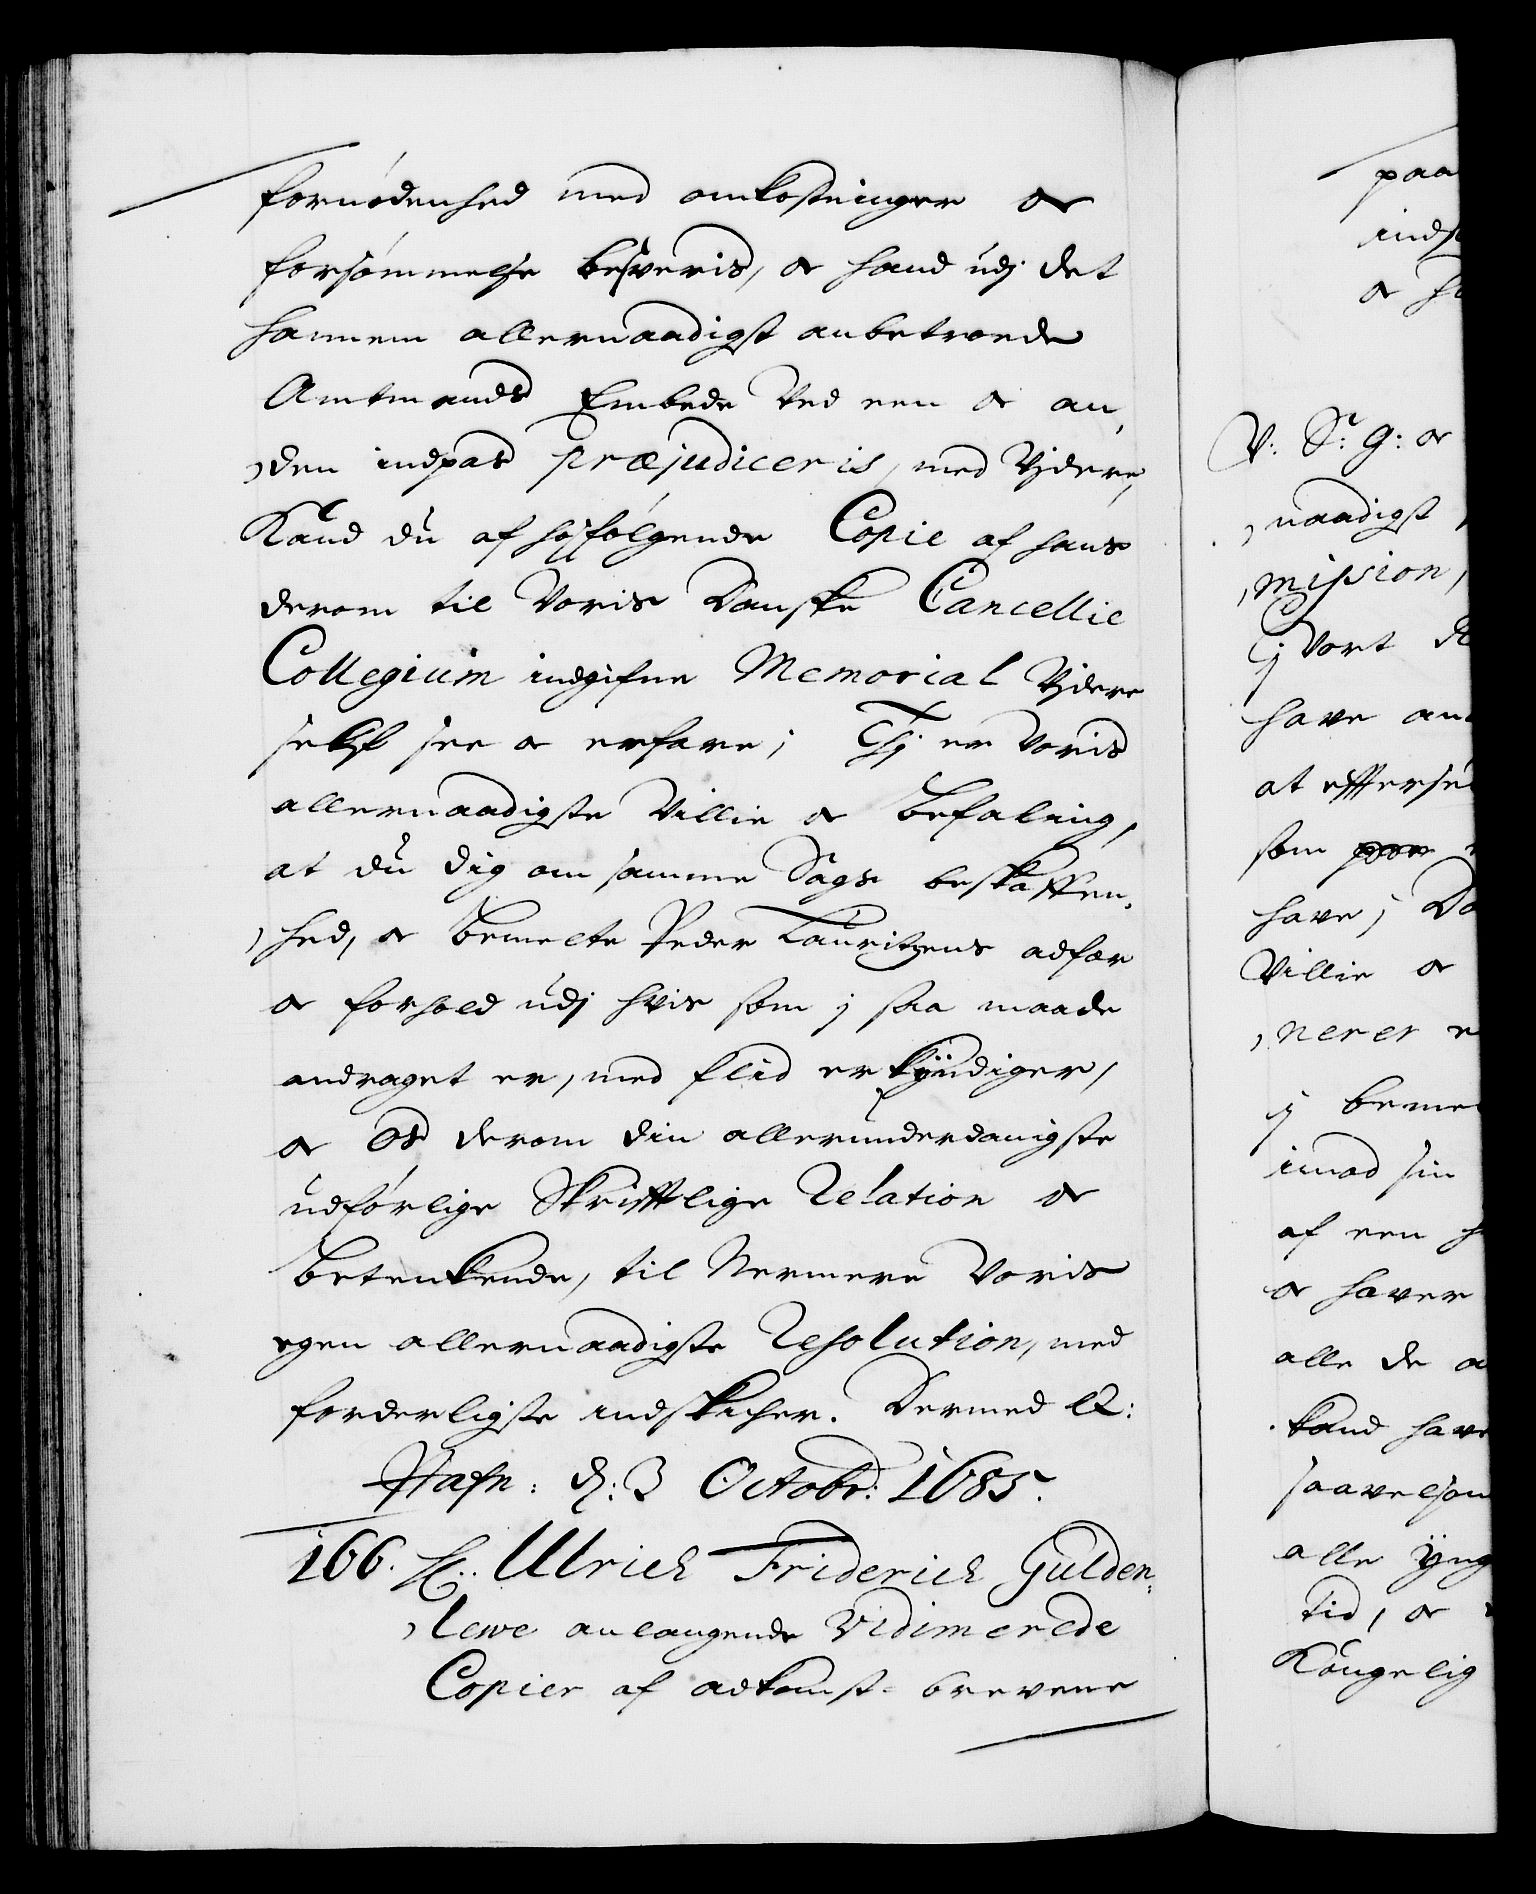 fornødenhed med omkostninger og
forsømmelse besveris, og hand udj det
hannem allernaadigst anbetroede
Amtmands Embede ved een og an,
,den indpas præjudiceris, med Vjdere,
Kand du af hosfølgende Copie af hans
derom til Voris Danske Cancellie
Collegium indgifne Memorial Vjdere
selff see og erfare; Thj er Voris
allernaadigste Villie og Befaling,
at du dig om samme Sags beskaffen,
,hed, og bemelte Peder Lauritzens adfær
og forhold udj hvis som j saa maade
andraget er, med flid erkyndiger,
og Os derom din allerunderdanigste
udførlige Skrifftlige Relation og
Betenkende, til Nermere Voris
egen allernaadigste Resolution, med
forderligste indskicher. Dermed &c:
Hafn: d: 3 Octobr: 1685.
166. H: Ulrich Friderich Gulden,
,lewe anlangende Vidimerede
Copier af adkomst-brevene
paa
V: S: G: og
,naadigst
,mission,
Vort
have
at
som
have;
Villie og
,nerer
j
imod sin
af een
og haver
alle de
kand have
saavelsom
alle
tid, og
Kongelig